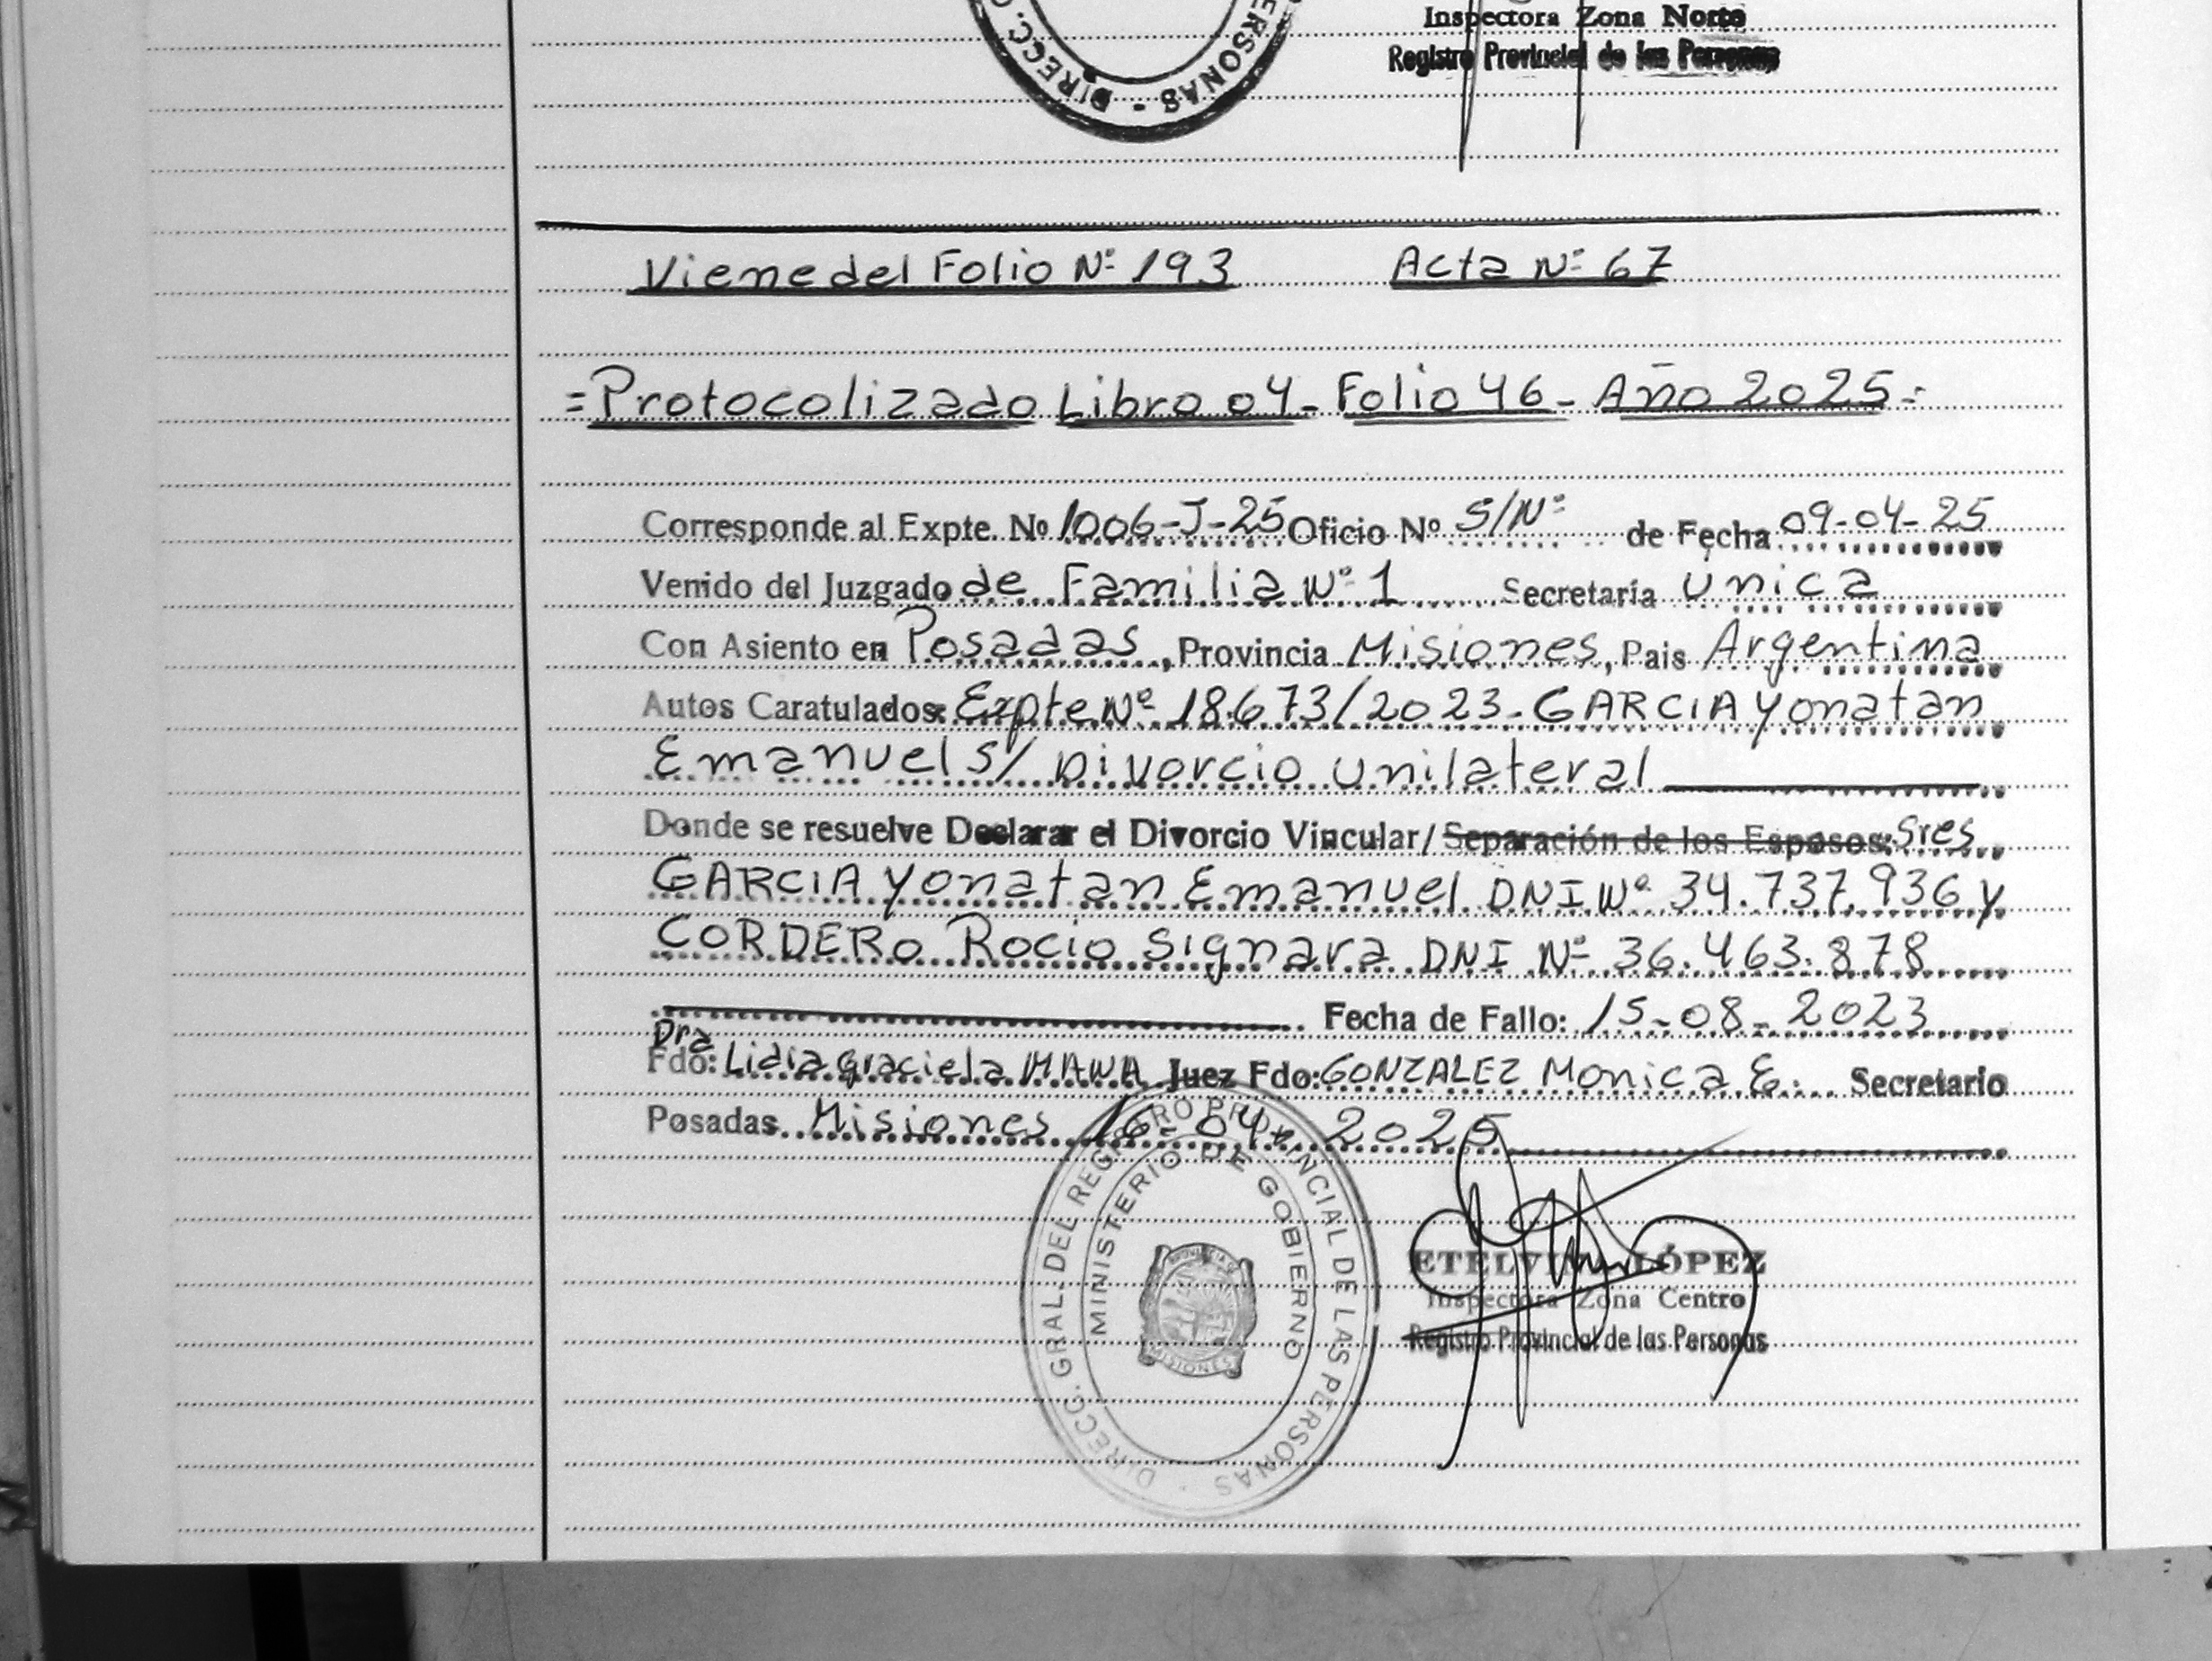 DIRECC. PERSONAS -
Inspectora Zona Norte
Registro Provincial de las Personas
Viene del Folio Nº 193 Acta Nº 67
=Protocolizado Libro 04- Folio 46- Año 2025=
Corresponde al Expte. Nº 1006-J-25 Oficio Nº S/Nº de Fecha 09-04-25
Venido del Juzgado de Familia Nº 1 Secretaría única
Con Asiento en Posadas, Provincia Misiones, Pais Argentina
Autos Caratulados: Expte Nº 18673/2023- GARCIA Yonatan
Emanuel S/ Divorcio unilateral
Donde se resuelve Declarar el Divorcio Vincular/ Separación de los Esposos: Sres
GARCIA Yonatan Emanuel DNI Nº 34.737.936 y
CORDERO Rocio Signara DNI Nº 36.463.878
Fecha de Fallo: 15-08-2023
Dra
Fdo: Lidia graciela Juez Fdo: GONZALEZ Monica E. Secretario
Posadas Misiones 16-04- 2025
DIRECC. GRAL. DEL REGISTRO PROVINCIAL DE LAS PERSONAS
MINISTERIO DE GOBIERNO
PROVINCIA D
MISIONES
ETELVINA LÓPEZ
Inspectora Zona Centro
Registro Provincial de las Personas